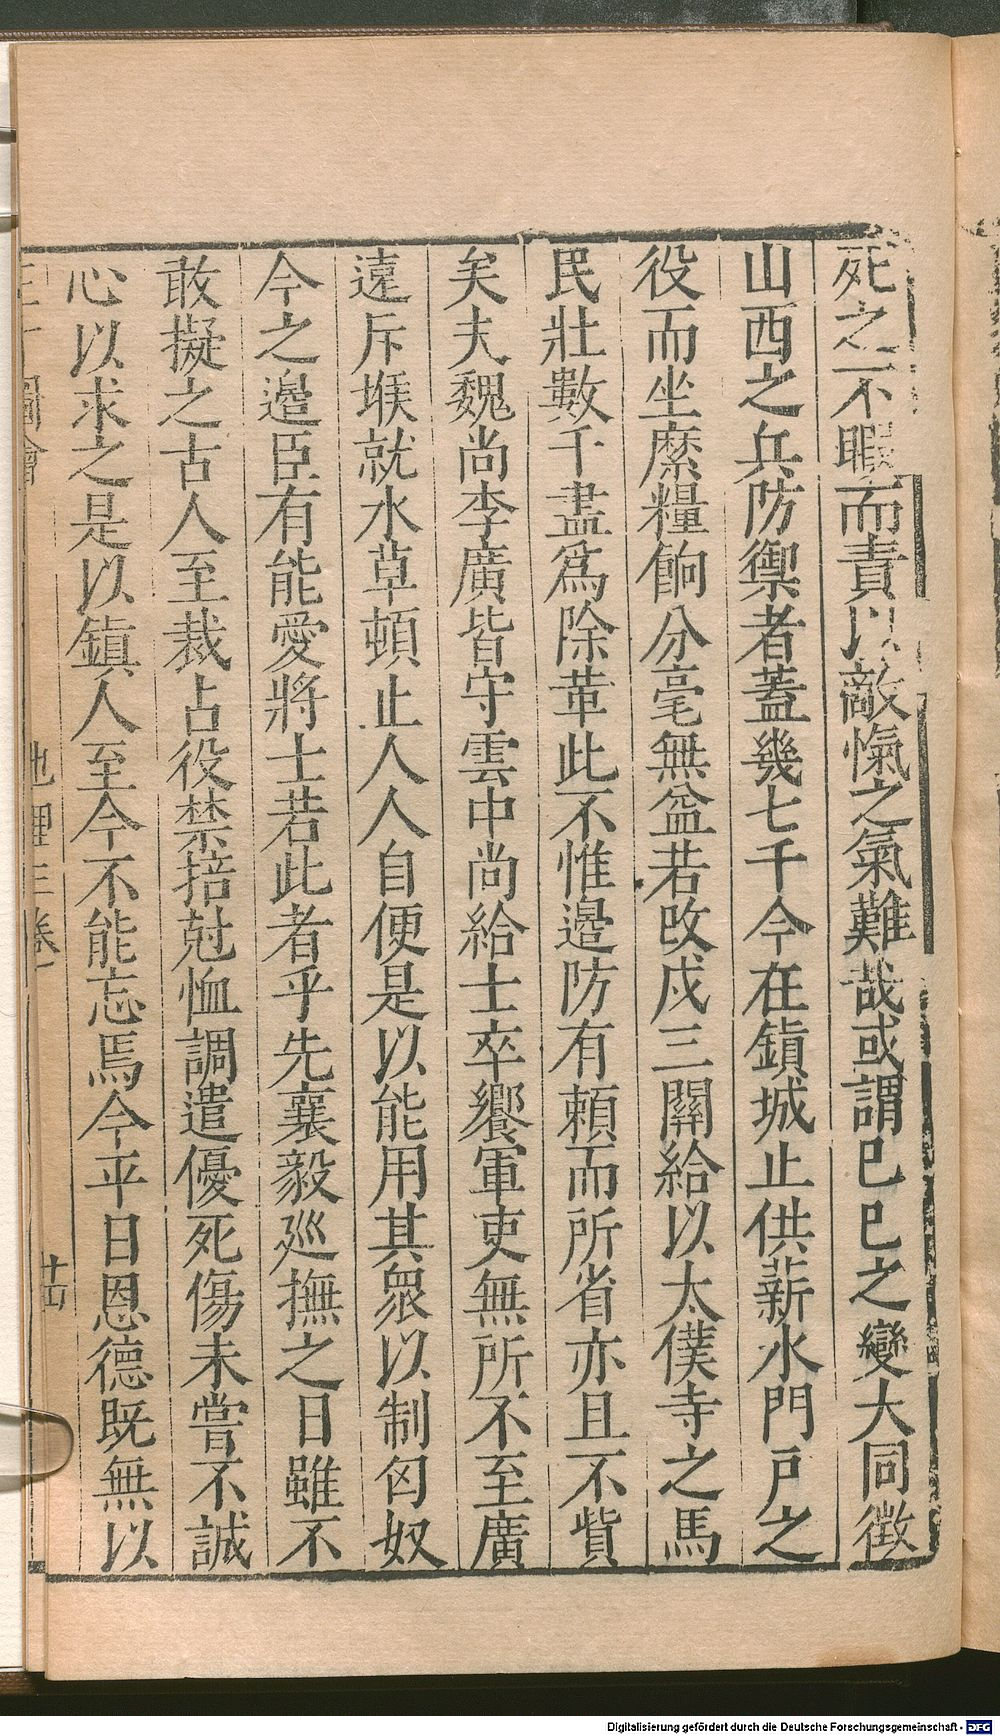 死之不暇而責以敵愾之氣難哉或謂已巳之變大同徵
山西之兵防禦者蓋幾七千今在鎮城止供薪水門戶之
役而坐縻糧餉分毫無益若改戍三關給以太僕寺之馬
民壯數千盡爲除革此不惟邊防有賴而所省亦且不貲
矣夫魏尚李廣皆守雲中尚給士卒饗軍吏無所不至廣
遠斥堠就水草頓止人人自便是以能用其衆以制匈奴
今之邉臣有能愛將士若此者乎先襄毅廵撫之日雖不
敢擬之古人至裁占役禁掊尅恤調遣優死傷未嘗不誠
心以求之是以鎮人至今不能忘焉今平日恩德既無以
圖會
地理三卷
廿四
Digitalisierung gefördert durch die Deutsche Forschungsgemeinschaft - DFG